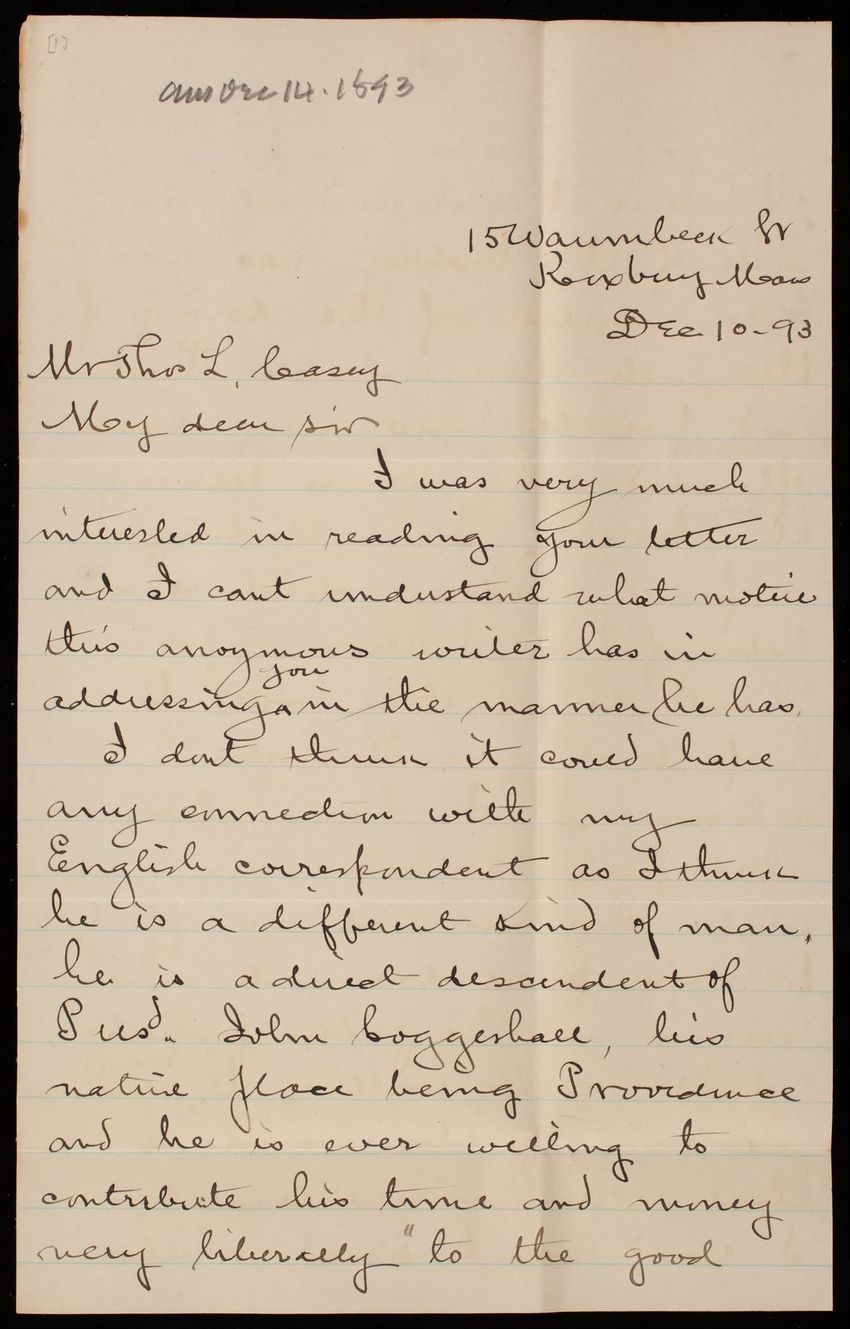 [1]
ans Dec 14. 1893
15 Waumbeck St
Roxbury Mass
Dec 10-93
Mr Thos L. Casey
My dear sir
I was very much
interested in reading your letter
and I cant understand what motive
this anoymous writer has in
addressing you in the manner he has.
I dont think it could have
any connection with my
English correspondent as I think
he is a different kind of man,
he is a direct descendent of
Presd. John Coggeshall, his
native place being Providence
and he is ever willing to
contribute his time and money
very liberally "to the good